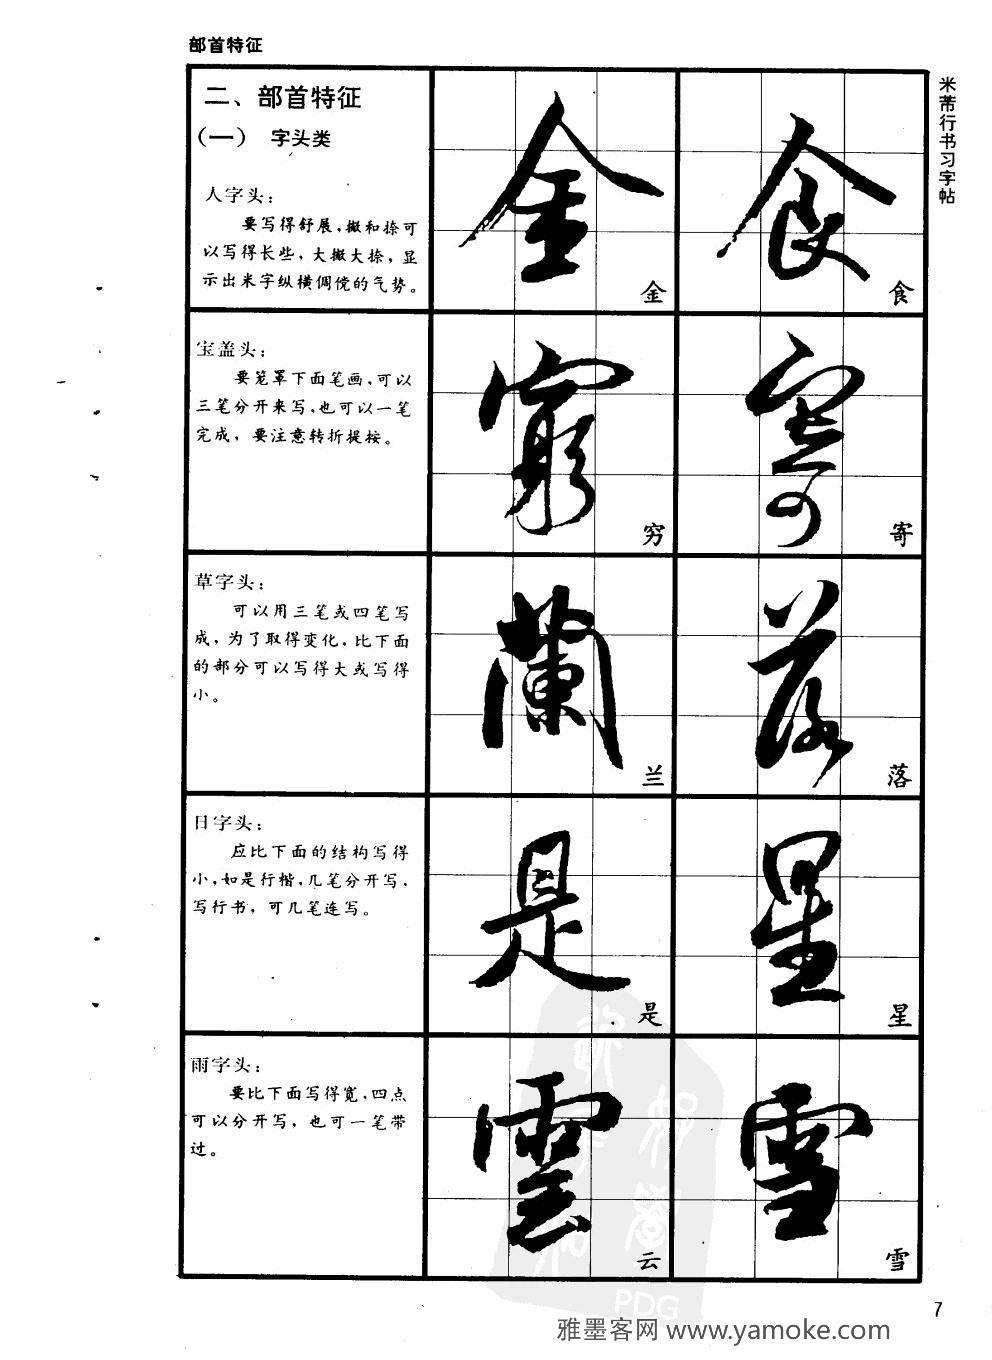 部首特征
米芾行书习字帖
二、部首特征
（一） 字头类
人字头：
要写得舒展，撇和捺可
以写得长些，大撇大捺，显
示出米字纵横倜傥的气势。
金
金
食
食
宝盖头：
要笼罩下面笔画，可以
三笔分开来写，也可以一笔
完成，要注意转折提按。
窮
穷
寄
寄
草字头：
可以用三笔或四笔写
成，为了取得变化，比下面
的部分可以写得大或写得
小。
蘭
兰
落
落
日字头：
应比下面的结构写得
小，如是行楷，几笔分开写，
写行书，可几笔连写。
是
是
星
星
雨字头：
要比下面写得宽，四点
可以分开写，也可一笔带
过。
雲
云
雪
雪
PDG
7
雅墨客网 www.yamoke.com